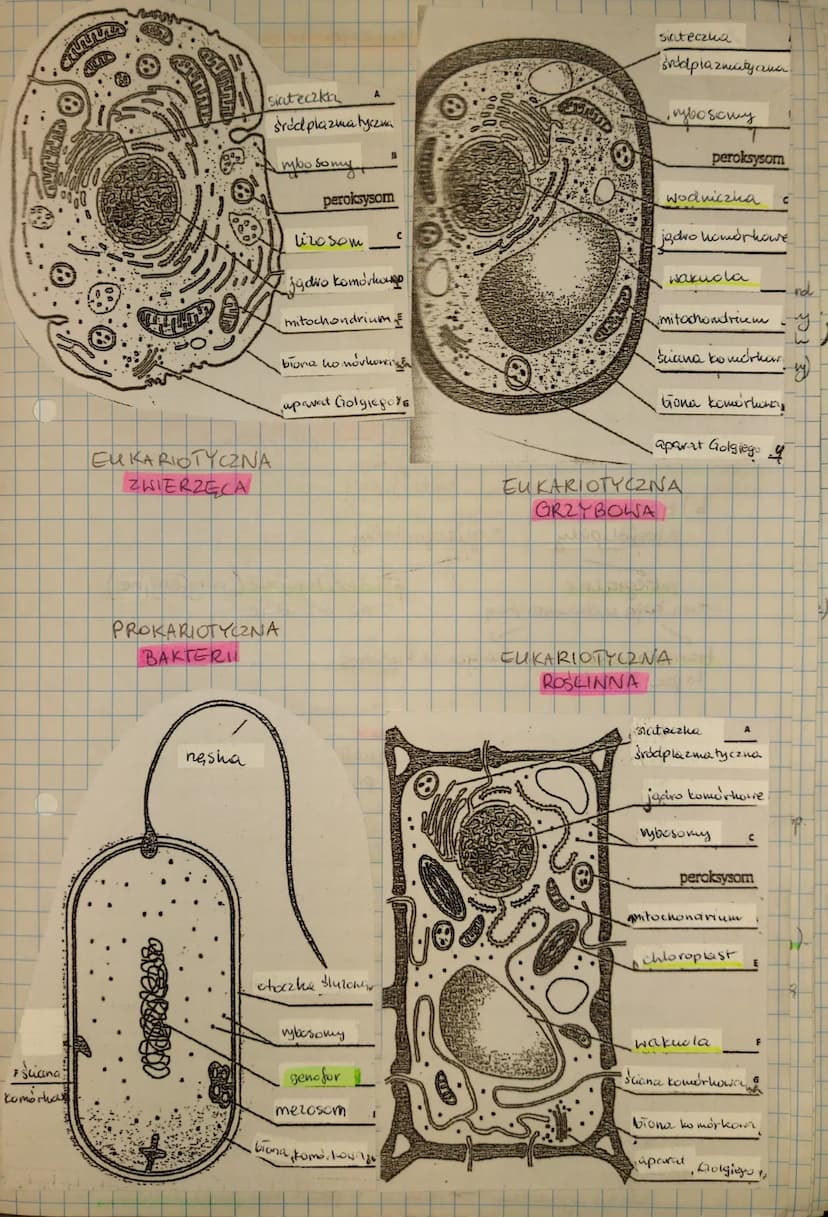 siateczka A
śródplazmatyczna
rybosomy B
peroksysom
lizosom C
jądro komórkowe D
mitochondrium E
błona komórkowa F
aparat Golgiego G
EUKARIOTYCZNA
ZWIERZĘCA
siateczka
śródplazmatyczna
rybosomy
peroksysom
wodniczka C
jądro komórkowe
wakuola
mitochondrium
ściana komórkow
błona komórkowa
aparat Golgiego
EUKARIOTYCZNA
GRZYBOWA
PROKARIOTYCZNA
BAKTERII
rzęska
otoczka śluzowa
rybosomy
genofor
mezosom
błona komórkowa
F ściana
komórkowa
EUKARIOTYCZNA
ROŚLINNA
siateczka A
śródplazmatyczna
jądro komórkowe
rybosomy C
peroksysom
mitochondrium
chloroplast E
wakuola F
ściana komórkowa G
błona komórkowa
aparat Golgiego